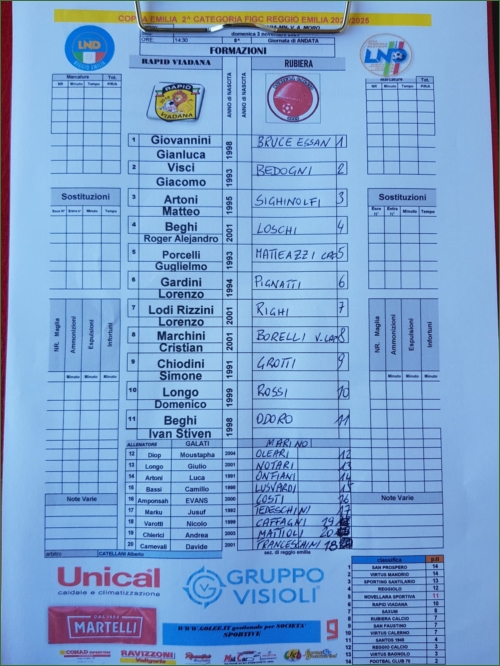 COPPA EMILIA 2^ CATEGORIA FIGC REGGIO EMILIA
domenica 3
ORE 14:30 8^ Giornata di ANDATA
FORMAZIONI
RAPID VIADANA ANNO di NASCITA RUBIERA ANNO di NASCITA
LND LND
RAPID VIADANA
Marcature Tot.
NR Minuto Tempo P/R/A
Marcature Tot.
NR Minuto Tempo P/R/A
1 Giovannini Gianluca 1998 BRUCE ESSAN 1
2 Visci Giacomo 1993 BEDOGNI 2
3 Artoni Matteo 1995 SIGHINOLFI 3
4 Beghi Roger Alejandro 2001 LOSCHI 4
5 Porcelli Guglielmo 1993 MATTEAZZI CAP 5
6 Gardini Lorenzo 1994 PIGNATTI 6
7 Lodi Rizzini Lorenzo 2001 RIGHI 7
8 Marchini Cristian 2001 BORELLI V.CAP 8
9 Chiodini Simone 1991 GROTTI 9
10 Longo Domenico 1999 ROSSI 10
11 Beghi Ivan Stiven 1998 ODORO 11
ALLENATORE GALATI MARINO
12 Diop Moustapha 2004 OLEARI 12
13 Longo Giulio 2001 NOTARI 13
14 Artoni Luca 1991 14
15 Bassi Camillo 1998 LUSVARDI 15
16 Amponsah EVANS 2000 COSTI 16
17 Marku Jusuf 1992 TEDESCHINI 17
18 Varotti Nicolo 1999 CAFFAGNI 19
19 Chierici Andrea 2003 MATTIOLI 20
20 Carnevali Davide 2001 18
arbitro CATELLANI Alberto sez. di reggio emilia
Sostituzioni
Esce N° Entra n° Minuto Tempo
Sostituzioni
Esce N° Entra N° Minuto Tempo
NR. Maglia Ammonizioni Espulsioni Infortuni
Minuto Minuto Minuto
NR. Maglia Ammonizioni Espulsioni Infortuni
Minuto Minuto Minuto
Note Varie
Note Varie
Unical
caldaie e climatizzazione
GRUPPO VISIOLI
MARTELLI
WWW.GOLEE.IT gestionale per SOCIETA' SPORTIVE
CONAD RAVIZZONI
classifica p.ti
1 SAN PROSPERO 14
2 VIRTUS MANDRIO 14
3 SPORTING SANTILARIO 13
4 REGGIOLO 12
5 NOVELLARA SPORTIVA 11
6 RAPID VIADANA 10
7 SAXUM 8
8 RUBIERA CALCIO 7
9 SAN FAUSTINO 7
10 VIRTUS CALERNO 7
11 SANTOS 1948 4
12 REGGIO CALCIO 3
13 VIRTUS BAGNOLO 3
14 FOOTBALL CLUB 70 2